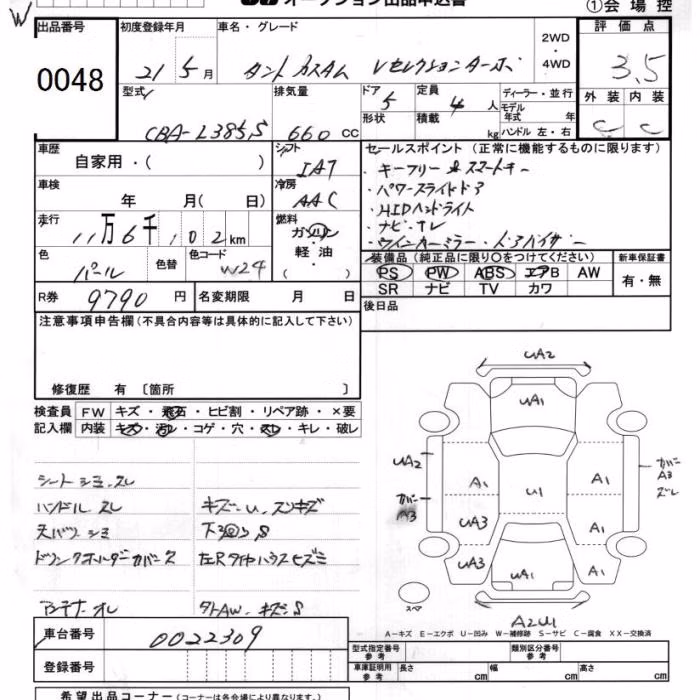 W
オークション出品申込書
①会場控
出品番号 初度登録年月 車名・グレード 評価点
0048
21年5月 タントカスタム Vセレクションターボ 2WD・4WD
3.5
型式 排気量 ドア 定員 ディーラー・並行
CBA-L385S 660cc 5 4人 モデル年式 年
形状 積載 kg ハンドル 左・右
外装 内装
C C
車歴 自家用・( ) シフト IAT
車検 年 月( 日) 冷房 AAC
走行 11万6千,102km 燃料 ガソリン・軽油・( )
色 パール 色替 色コード W24
R券 9790円 名変期限 月 日
セールスポイント(正常に機能するものに限ります)
・キーフリー スマートキー
・パワースライドドア
・HIDヘッドライト
・ナビ・TV
・ウインカーミラー・ドアバイザー
装備品(純正品に限り○をつけてください) 新車保証書
PS PW ABS エアB AW 有・無
SR ナビ TV カワ
後日品
注意事項申告欄(不具合内容等は具体的に記入して下さい)
修復歴 有 〔箇所 〕
検査員記入欄 FW キズ・飛石・ヒビ割・リペア跡・×要
内装 キズ・汚レ・コゲ・穴・スレ・キレ・破レ
シートシミ、スレ
ハンドルスレ キズ・U、スリキズ
天バリシミ 下廻S
ドリンクホルダーカバーヌケ 左Rタイヤハウスヒズミ
アンテナオレ タトAW、キズS
UA2
UA1
UA2 A1 U1 A1 カバーA3ズレ
カバーA3 UA3 A1
UA3 UA1 A1
スペア
A2U1
A-キズ E-エクボ U-凹み W-補修跡 S-サビ C-腐食 XX-交換済
車台番号 0022309
登録番号
型式指定番号 参考 類別区分番号 参考
車庫証明用 参考 長さ cm 幅 cm 高さ cm
希望出品コーナー(コーナーは各会場により異なります。)